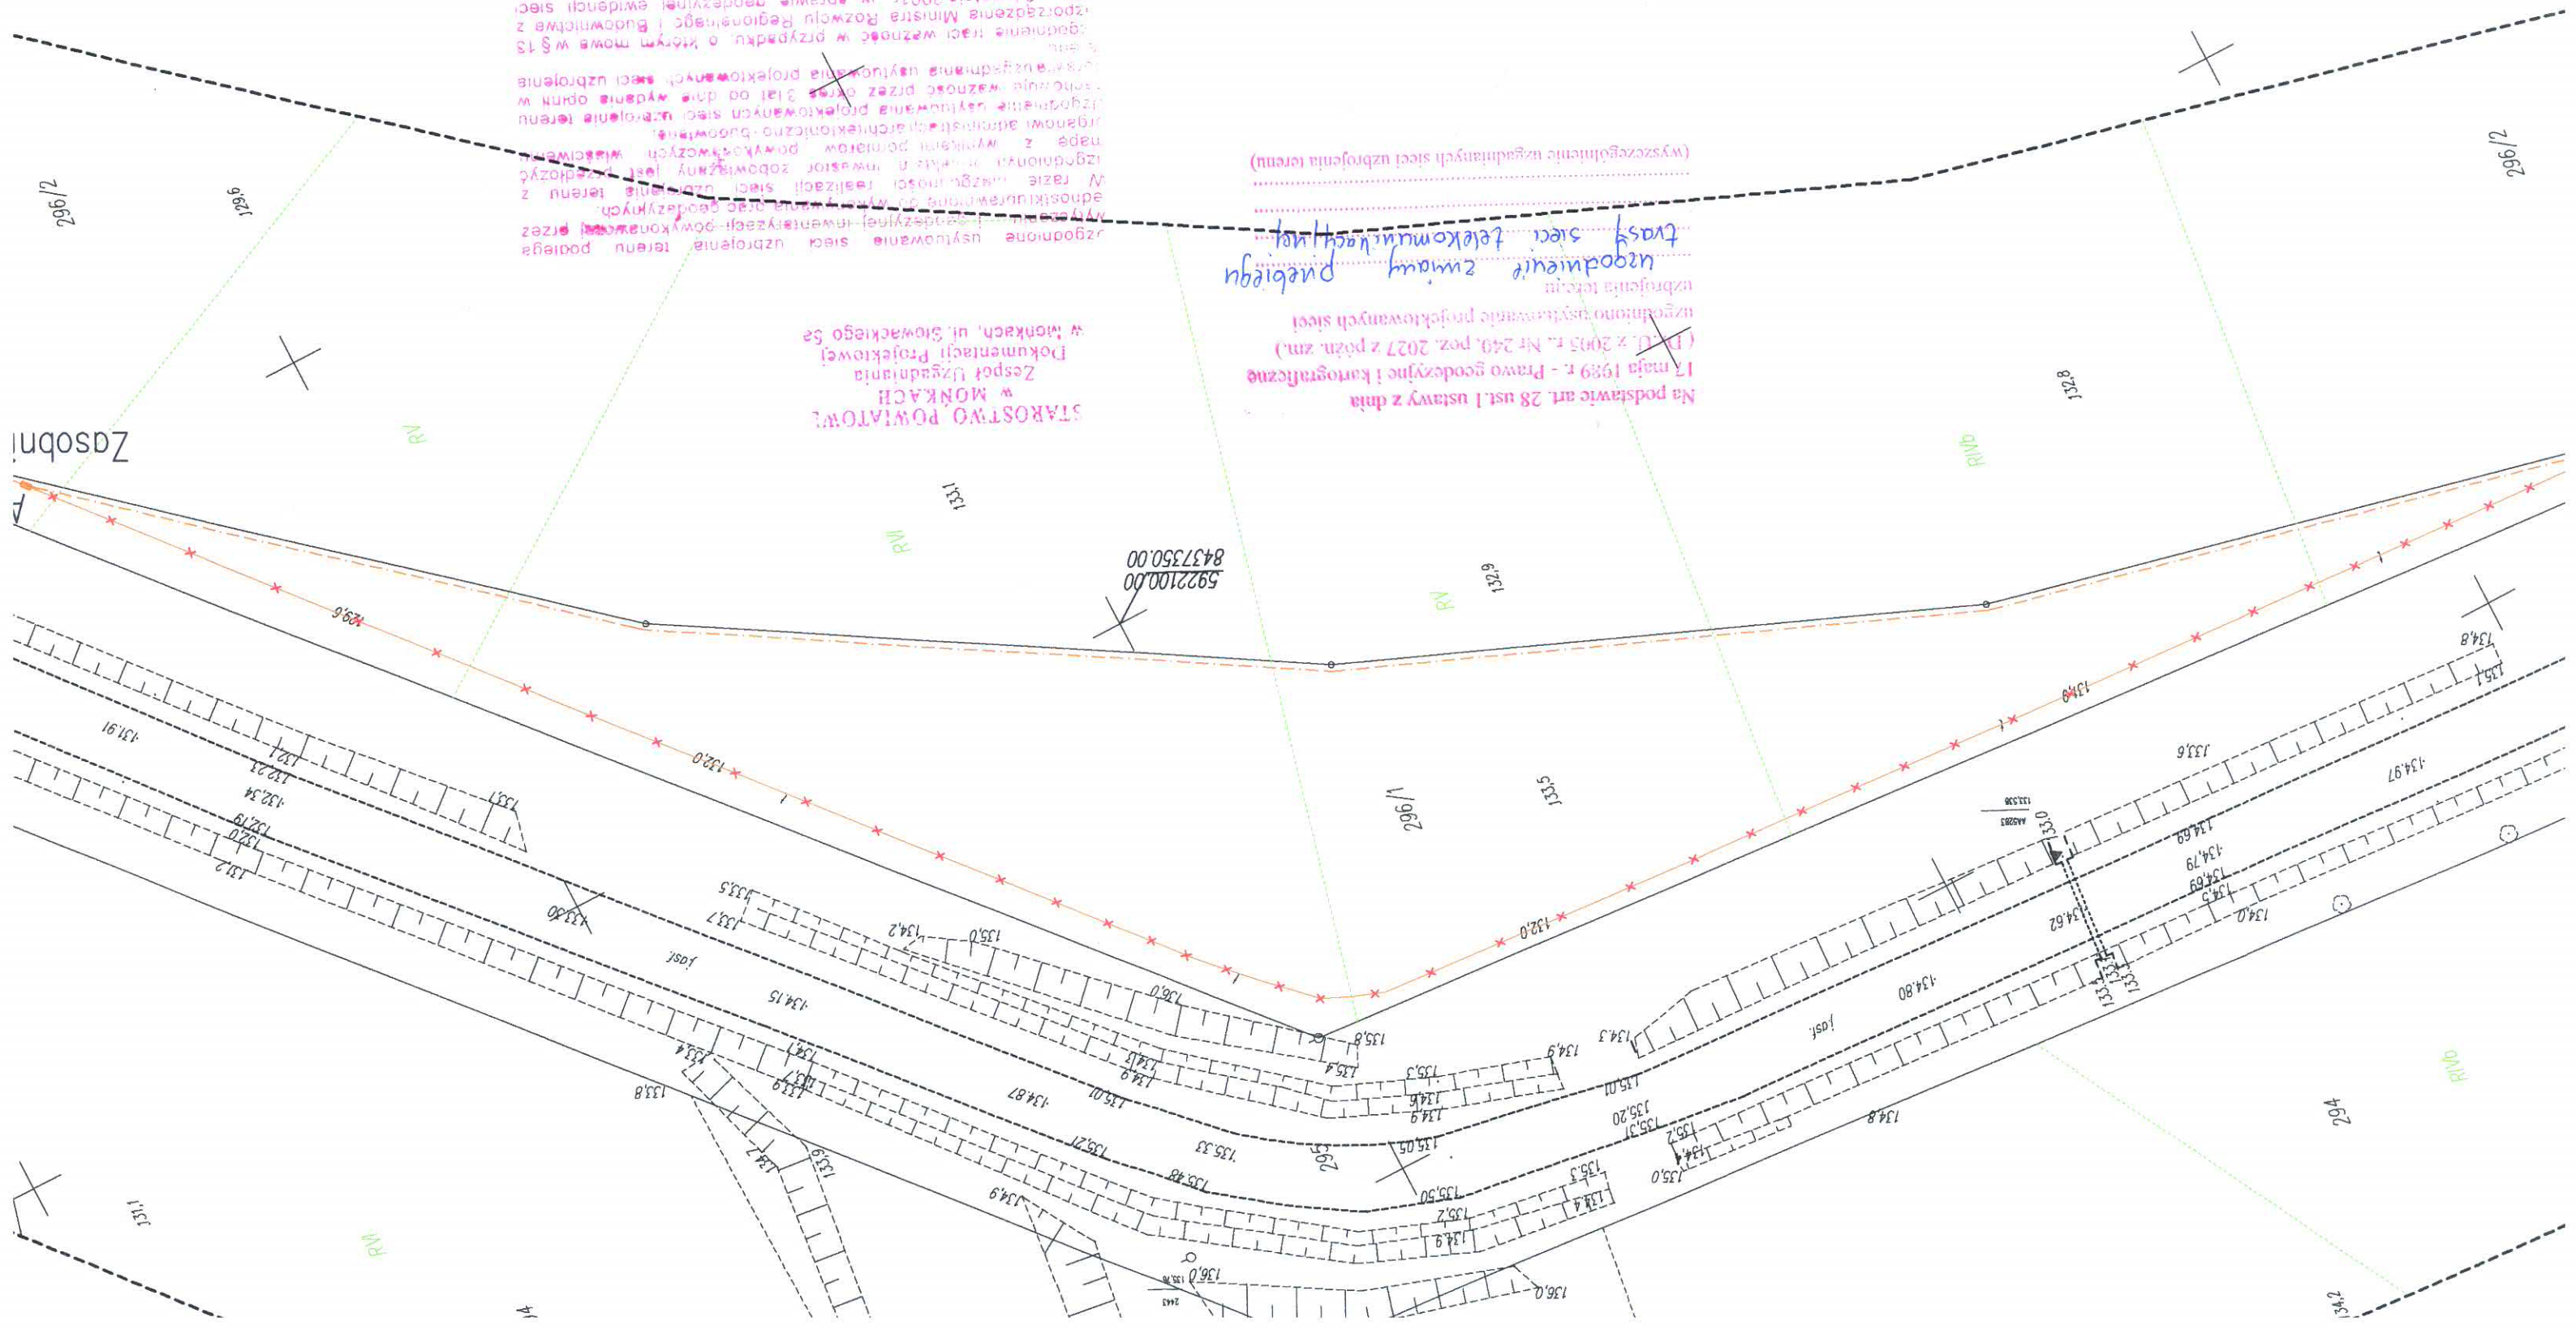 Na podstawie art. 28 ust.1 ustawy z dnia
17 maja 1989 r. - Prawo geodezyjne i kartograficzne
(Dz.U. z 2005 r. Nr 240, poz. 2027 z późn. zm.)
uzgodniono usytuowanie projektowanych sieci
uzbrojenia terenu
uzgodnienie zmiany przebiegu
trasy sieci telekomunikacyjnej
(wyszczególnienie uzgadnianych sieci uzbrojenia terenu)
STAROSTWO POWIATOWE
w MOŃKACH
Zespół Uzgadniania
Dokumentacji Projektowej
w Mońkach, ul. Słowackiego 5a
uzgodnione usytuowanie sieci uzbrojenia terenu podlega
wytyczeniu i geodezyjnej inwentaryzacji powykonawczej przez
jednostki uprawnione do wykonywania prac geodezyjnych.
W razie niezgodności realizacji sieci uzbrojenia terenu z
uzgodnionym projektem inwestor zobowiązany jest przedłożyć
mapę z wynikami pomiarów powykonawczych właściwemu
organowi administracji architektoniczno-budowlanej.
Uzgodnienie usytuowania projektowanych sieci uzbrojenia terenu
zachowuje ważność przez okres 3 lat od dnia wydania opinii w
sprawie uzgadniania usytuowania projektowanych sieci uzbrojenia
terenu
Uzgodnienie traci ważność w przypadku, o którym mowa w § 13
rozporządzenia Ministra Rozwoju Regionalnego i Budownictwa z
w sprawie geodezyjnej ewidencji sieci
5922100.00
8437350.00
Zasobni
296/2
129,6
296/2
132,8
RV
RVI
133,1
RV
132,9
RIVb
296/1
133,5
129,6
132,0
132,0
131,9
131.91
132,1
132.23
132,34
132.19
132,0
131,2
133,7
133.50
133,5
133,7
134,2
135,0
136,0
135,8
135,4
jast.
134.15
134,1
133,7
133,9
133,4
133,8
134,3
134,9
135.01
134.87
135.21
135.33
135.48
295
135.05
135,50
135,3
134,6
134,9
134,9
134,3
135.01
135.20
135.31
135,2
134,4
135,0
135,3
134,4
135,2
134,9
136,0
136,0
2443
135,76
134,9
134,7
133,9
131,1
RVI
jast.
134.80
134.62
134,8
133,0
AA5283
133,538
134.69
134.79
134.69
134,5
134,0
133,6
134.97
134,8
135,1
RIVb
294
134,2